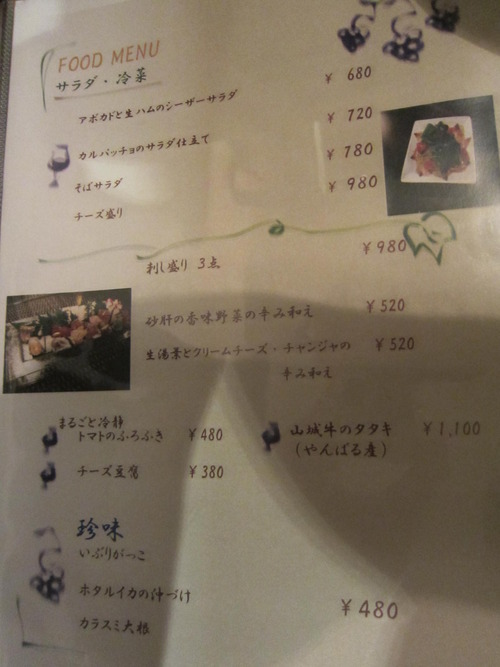 FOOD MENU
サラダ・冷菜
アボカドと生ハムのシーザーサラダ ¥ 680
カルパッチョのサラダ仕立て ¥ 720
そばサラダ ¥ 780
チーズ盛り ¥ 980
刺し盛り 3点 ¥980
砂肝の香味野菜の辛み和え ¥520
生湯葉とクリームチーズ・チャンジャの ¥520
辛み和え
まるごと冷静
トマトのふろふき ¥480
チーズ豆腐 ¥380
山城牛のタタキ ¥1,100
(やんばる産)
珍味
いぶりがっこ
ホタルイカの沖づけ
カラスミ大根
¥480